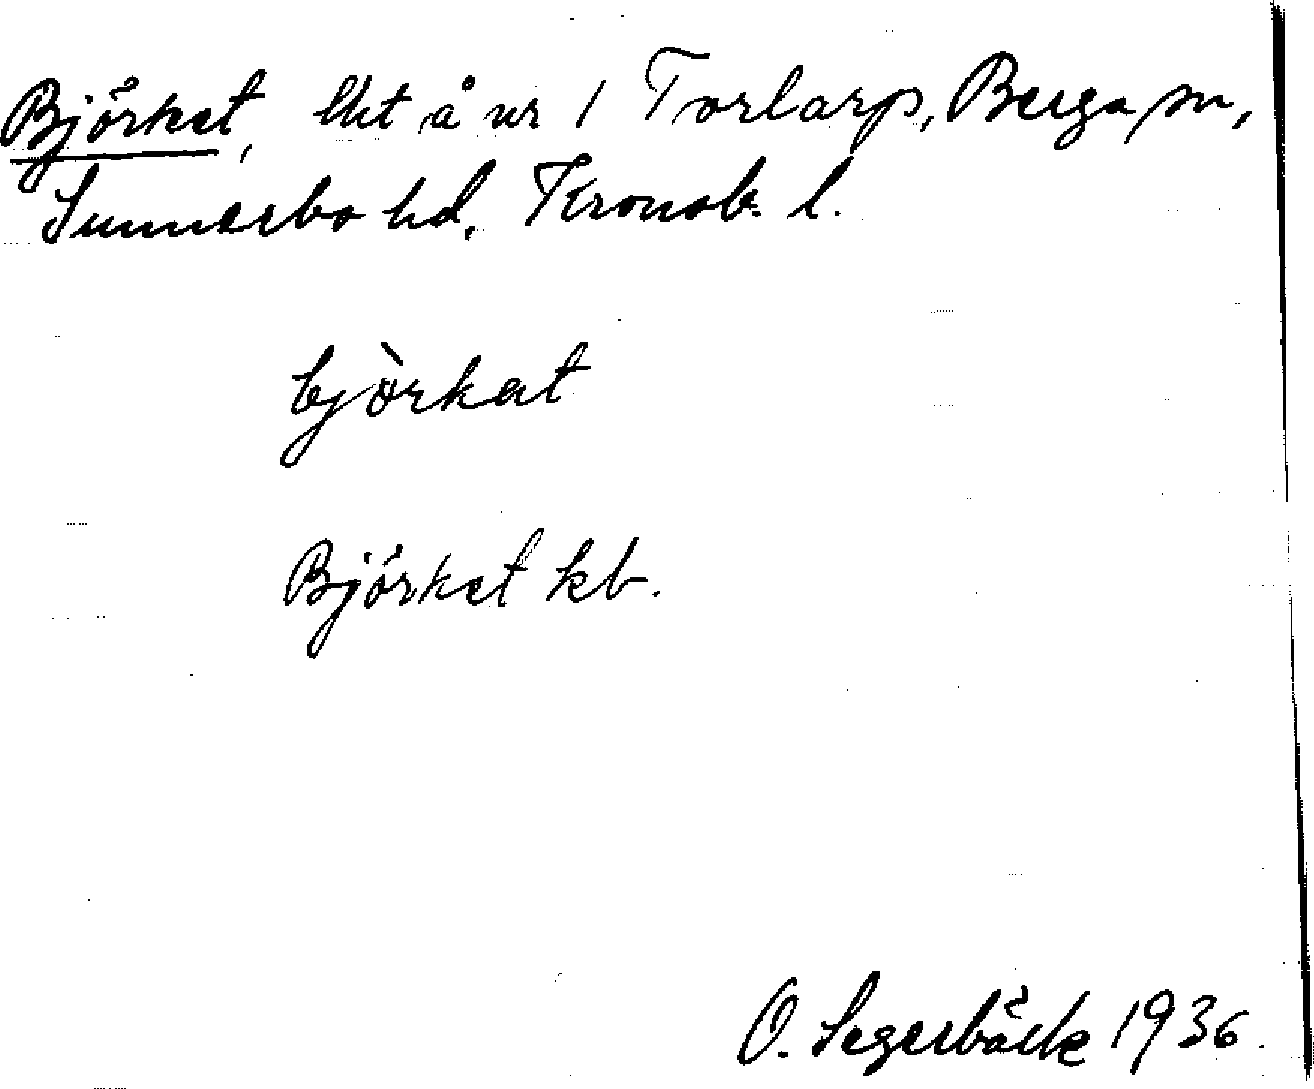 Björket, lht å nr 1 Torlarp, Berga sn,
Sunnerbo hd, Kronob. l.
bjòrkat
Björket kb.
O. Segerbäck 1936.